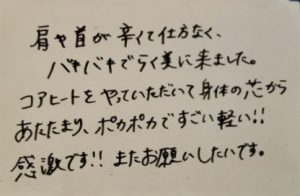 肩や首が辛くて仕方なく、
バキバキでらく美に来ました。
コアヒートをやっていただいて身体の芯から
あたたまり、ポカポカですごい軽い!!
感激です!! またお願いしたいです。